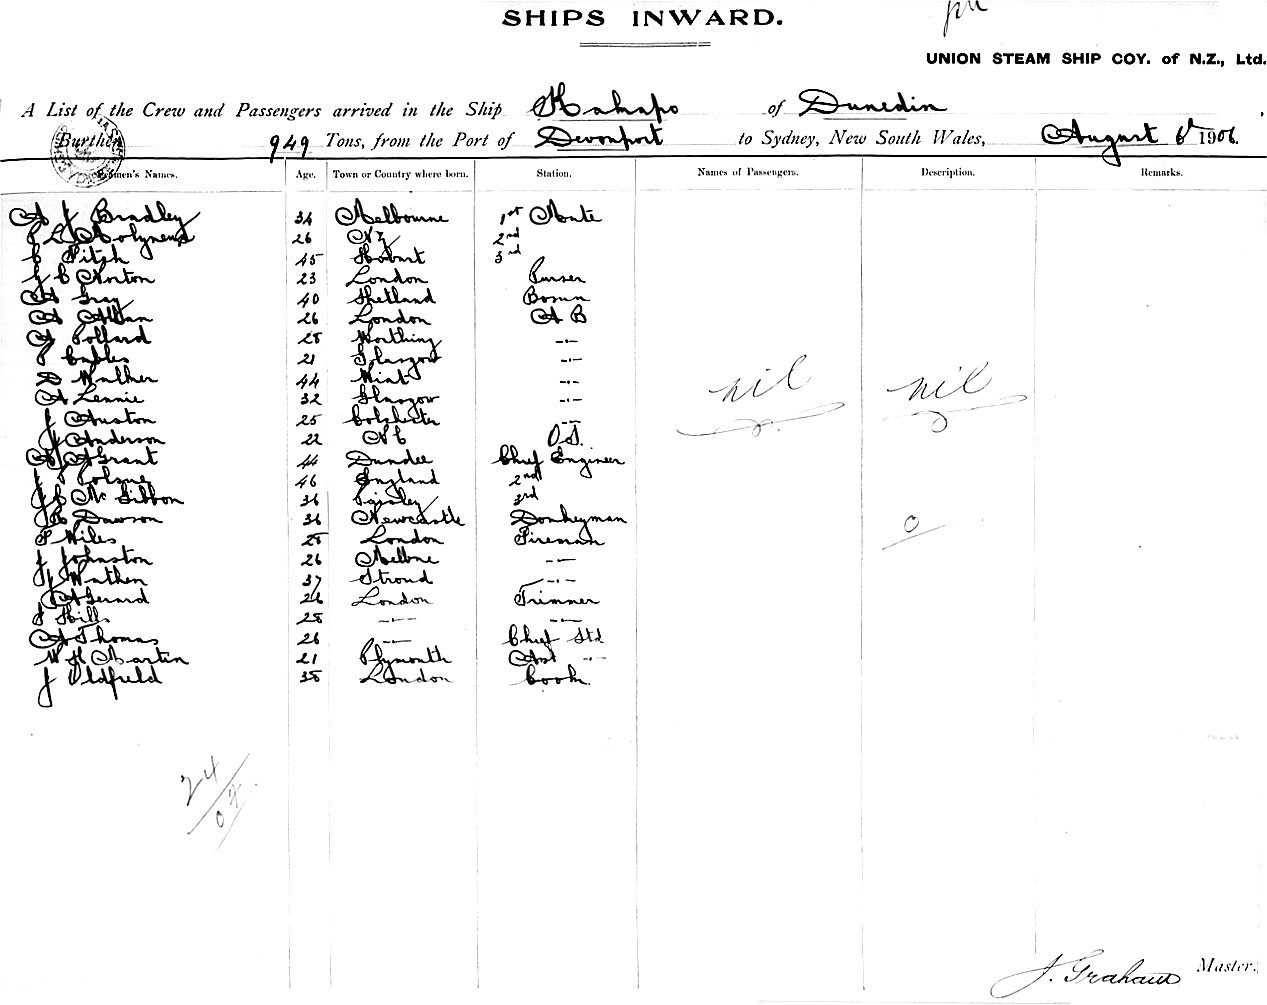 SHIPS INWARD.
UNION STEAM SHIP COY. of N.Z., Ltd.
A List of the Crew and Passengers arrived in the Ship Kakapo of Dunedin
Burthen 949 Tons, from the Port of Devonport to Sydney, New South Wales, August 6th 1906.
Names. Age. Town or Country where born. Station. Names of Passengers. Description. Remarks.
A J Bradley 34 Melbourne 1st Mate
Molyneux 26 NZ 2nd
C Fitch 45 Hobart 3rd
C Norton 23 London Purser
A Gray 40 Shetland Bosun
A Allan 26 London A B
A Pollard 28 Worthing -·-
P Cables 21 Glasgow -·-
D Walker 44 -·- nil nil
A Lennie 32 Glasgow -·-
J Auston 25 Colchester -·-
J Anderson 22 O.S.
A Grant 44 Dundee Chief Engineer
46 England 2nd
Mc Gibbon 36 Paisley 3rd
Dawson 36 Newcastle Donkeyman 0
Miles 28 London Fireman
J Johnston 26 Melbne -·-
J Wathen 37 Stroud -·-
A Gerard 26 London Trimmer
Hills 28 -·- -·-
A Thomas 26 -·- Chief Std
W H Martin 21 Plymouth Asst -·-
J Oldfield 38 London Cook.
24
J. Graham Master.